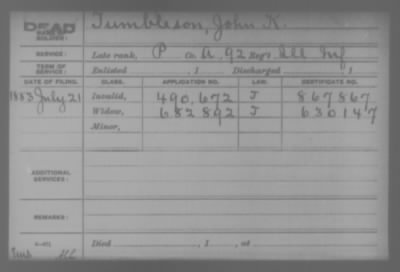 DEAD
NAME OF SOLDIER: Tumbleson, John K.
SERVICE: Late rank, P Co. A, 92 Reg't Ill Inf
TERM OF SERVICE: Enlisted , 1 Discharged , 1
DATE OF FILING. CLASS. APPLICATION NO. LAW. CERTIFICATE NO.
1883 July 21 Invalid, 490,672 J 867867
Widow, 682892 J 630147
Minor,
ADDITIONAL SERVICES:
REMARKS:
Died , 1 , at